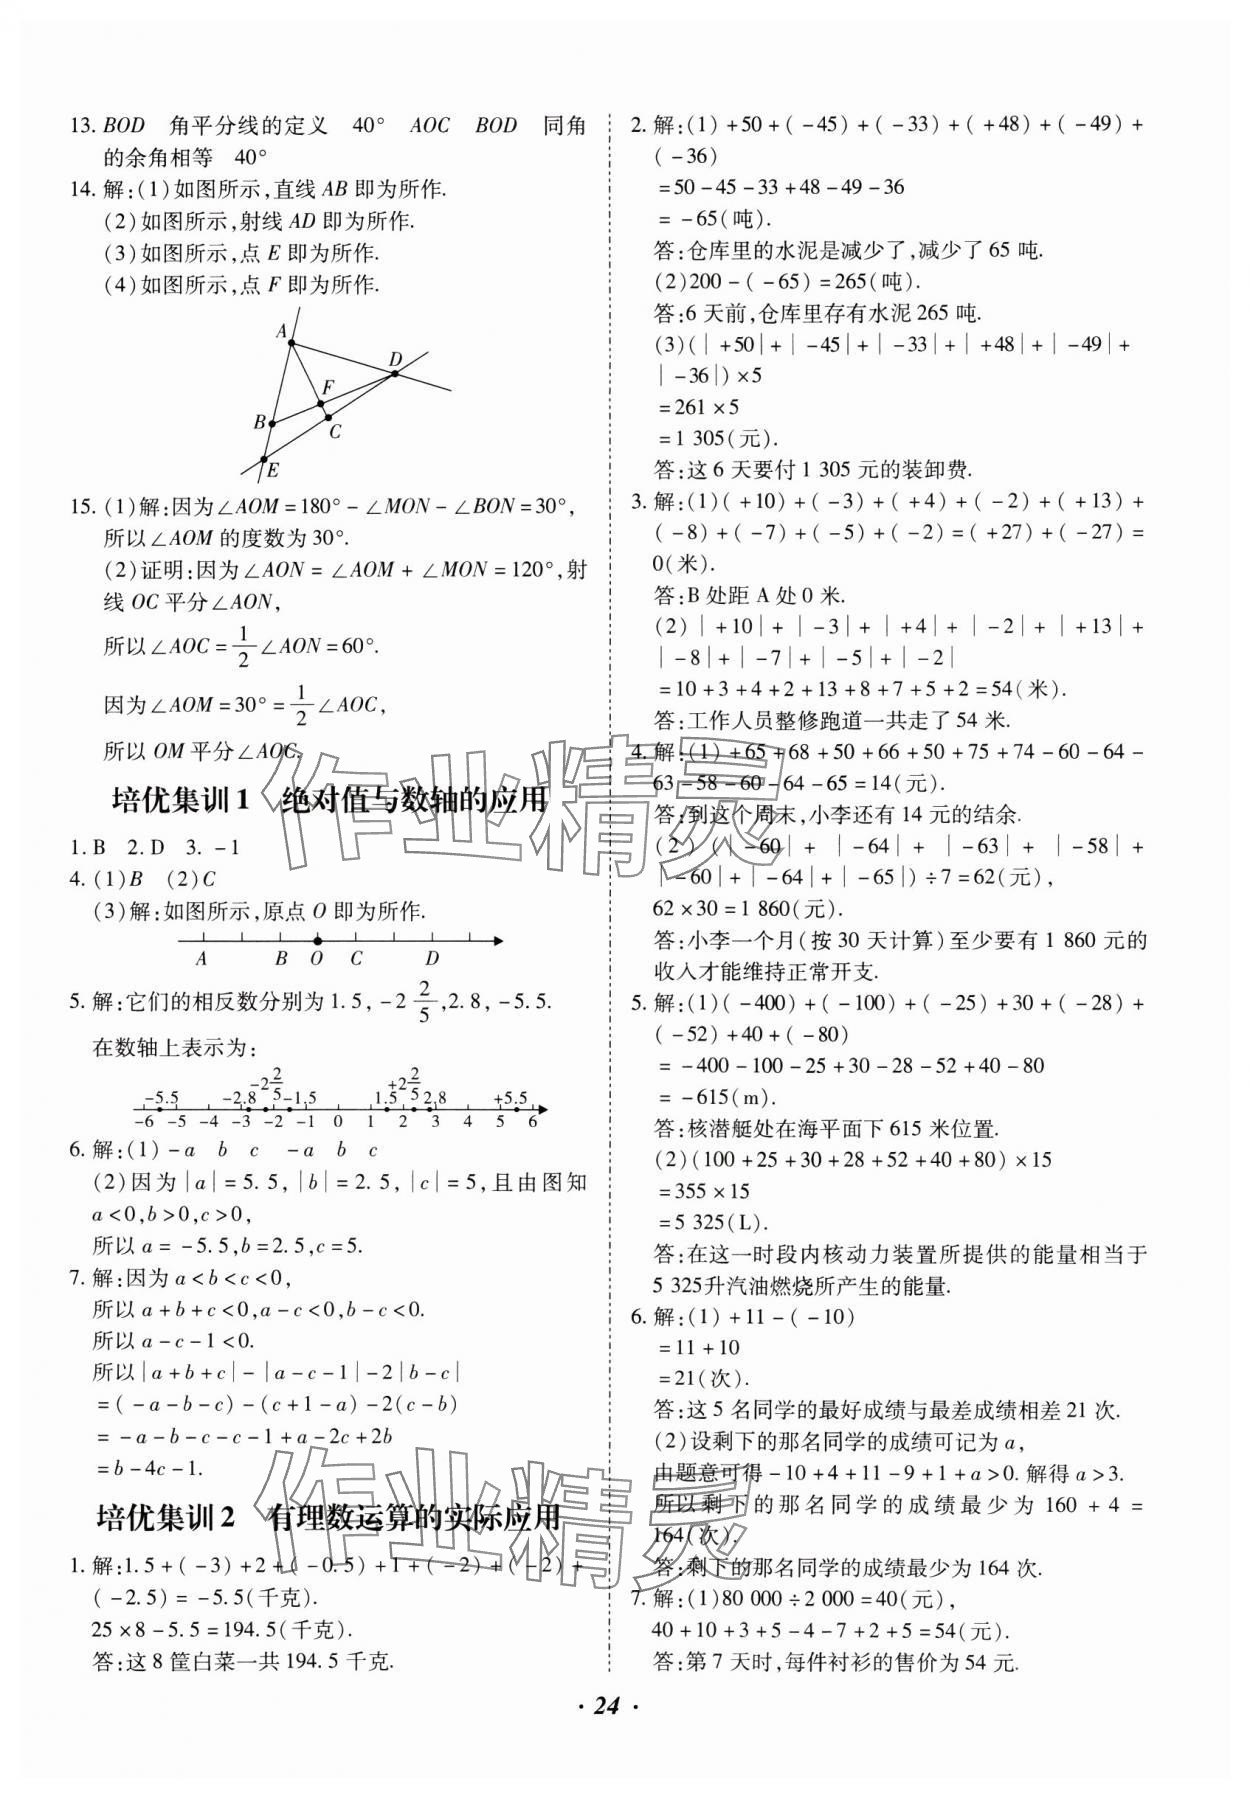 13. BOD　角平分线的定义　40°　AOC　BOD　同角
的余角相等　40°
14. 解:(1)如图所示,直线 AB 即为所作.
(2)如图所示,射线 AD 即为所作.
(3)如图所示,点 E 即为所作.
(4)如图所示,点 F 即为所作.
A
D
F
B
C
E
15. (1)解:因为∠AOM=180°-∠MON-∠BON=30°,
所以∠AOM 的度数为30°.
(2)证明:因为∠AON=∠AOM+∠MON=120°,射
线 OC 平分∠AON,
所以∠AOC=1/2∠AON=60°.
因为∠AOM=30°=1/2∠AOC,
所以 OM 平分∠AOC.
培优集训1　绝对值与数轴的应用
1. B　2. D　3. -1
4. (1)B　(2)C
(3)解:如图所示,原点 O 即为所作.
A B O C D
5. 解:它们的相反数分别为1.5,-2 2/5,2.8,-5.5.
在数轴上表示为:
-5.5 -2.8 -2 2/5 -1.5 1.5 +2 2/5 2.8 +5.5
-6 -5 -4 -3 -2 -1 0 1 2 3 4 5 6
6. 解:(1)-a　b　c　-a　b　c
(2)因为|a|=5.5,|b|=2.5,|c|=5,且由图知
a<0,b>0,c>0,
所以 a=-5.5,b=2.5,c=5.
7. 解:因为 a<b<c<0,
所以 a+b+c<0,a-c<0,b-c<0.
所以 a-c-1<0.
所以|a+b+c|-|a-c-1|-2|b-c|
=(-a-b-c)-(c+1-a)-2(c-b)
=-a-b-c-c-1+a-2c+2b
=b-4c-1.
培优集训2　有理数运算的实际应用
1. 解:1.5+(-3)+2+(-0.5)+1+(-2)+(-2)+
(-2.5)=-5.5(千克).
25×8-5.5=194.5(千克).
答:这 8 筐白菜一共 194.5 千克.
2. 解:(1)+50+(-45)+(-33)+(+48)+(-49)+
(-36)
=50-45-33+48-49-36
=-65(吨).
答:仓库里的水泥是减少了,减少了 65 吨.
(2)200-(-65)=265(吨).
答:6 天前,仓库里存有水泥 265 吨.
(3)(|+50|+|-45|+|-33|+|+48|+|-49|+
|-36|)×5
=261×5
=1 305(元).
答:这 6 天要付 1 305 元的装卸费.
3. 解:(1)(+10)+(-3)+(+4)+(-2)+(+13)+
(-8)+(-7)+(-5)+(-2)=(+27)+(-27)=
0(米).
答:B 处距 A 处 0 米.
(2)|+10|+|-3|+|+4|+|-2|+|+13|+
|-8|+|-7|+|-5|+|-2|
=10+3+4+2+13+8+7+5+2=54(米).
答:工作人员整修跑道一共走了 54 米.
4. 解:(1)+65+68+50+66+50+75+74-60-64-
63-58-60-64-65=14(元).
答:到这个周末,小李还有 14 元的结余.
(2)(|-60|+|-64|+|-63|+|-58|+
|-60|+|-64|+|-65|)÷7=62(元),
62×30=1 860(元).
答:小李一个月(按 30 天计算)至少要有 1 860 元的
收入才能维持正常开支.
5. 解:(1)(-400)+(-100)+(-25)+30+(-28)+
(-52)+40+(-80)
=-400-100-25+30-28-52+40-80
=-615(m).
答:核潜艇处在海平面下 615 米位置.
(2)(100+25+30+28+52+40+80)×15
=355×15
=5 325(L).
答:在这一时段内核动力装置所提供的能量相当于
5 325升汽油燃烧所产生的能量.
6. 解:(1)+11-(-10)
=11+10
=21(次).
答:这 5 名同学的最好成绩与最差成绩相差 21 次.
(2)设剩下的那名同学的成绩可记为 a,
由题意可得-10+4+11-9+1+a>0. 解得 a>3.
所以剩下的那名同学的成绩最少为 160+4=
164(次).
答:剩下的那名同学的成绩最少为 164 次.
7. 解:(1)80 000÷2 000=40(元),
40+10+3+5-4-7+2+5=54(元).
答:第 7 天时,每件衬衫的售价为 54 元.
作业精灵
作业精灵
· 24 ·